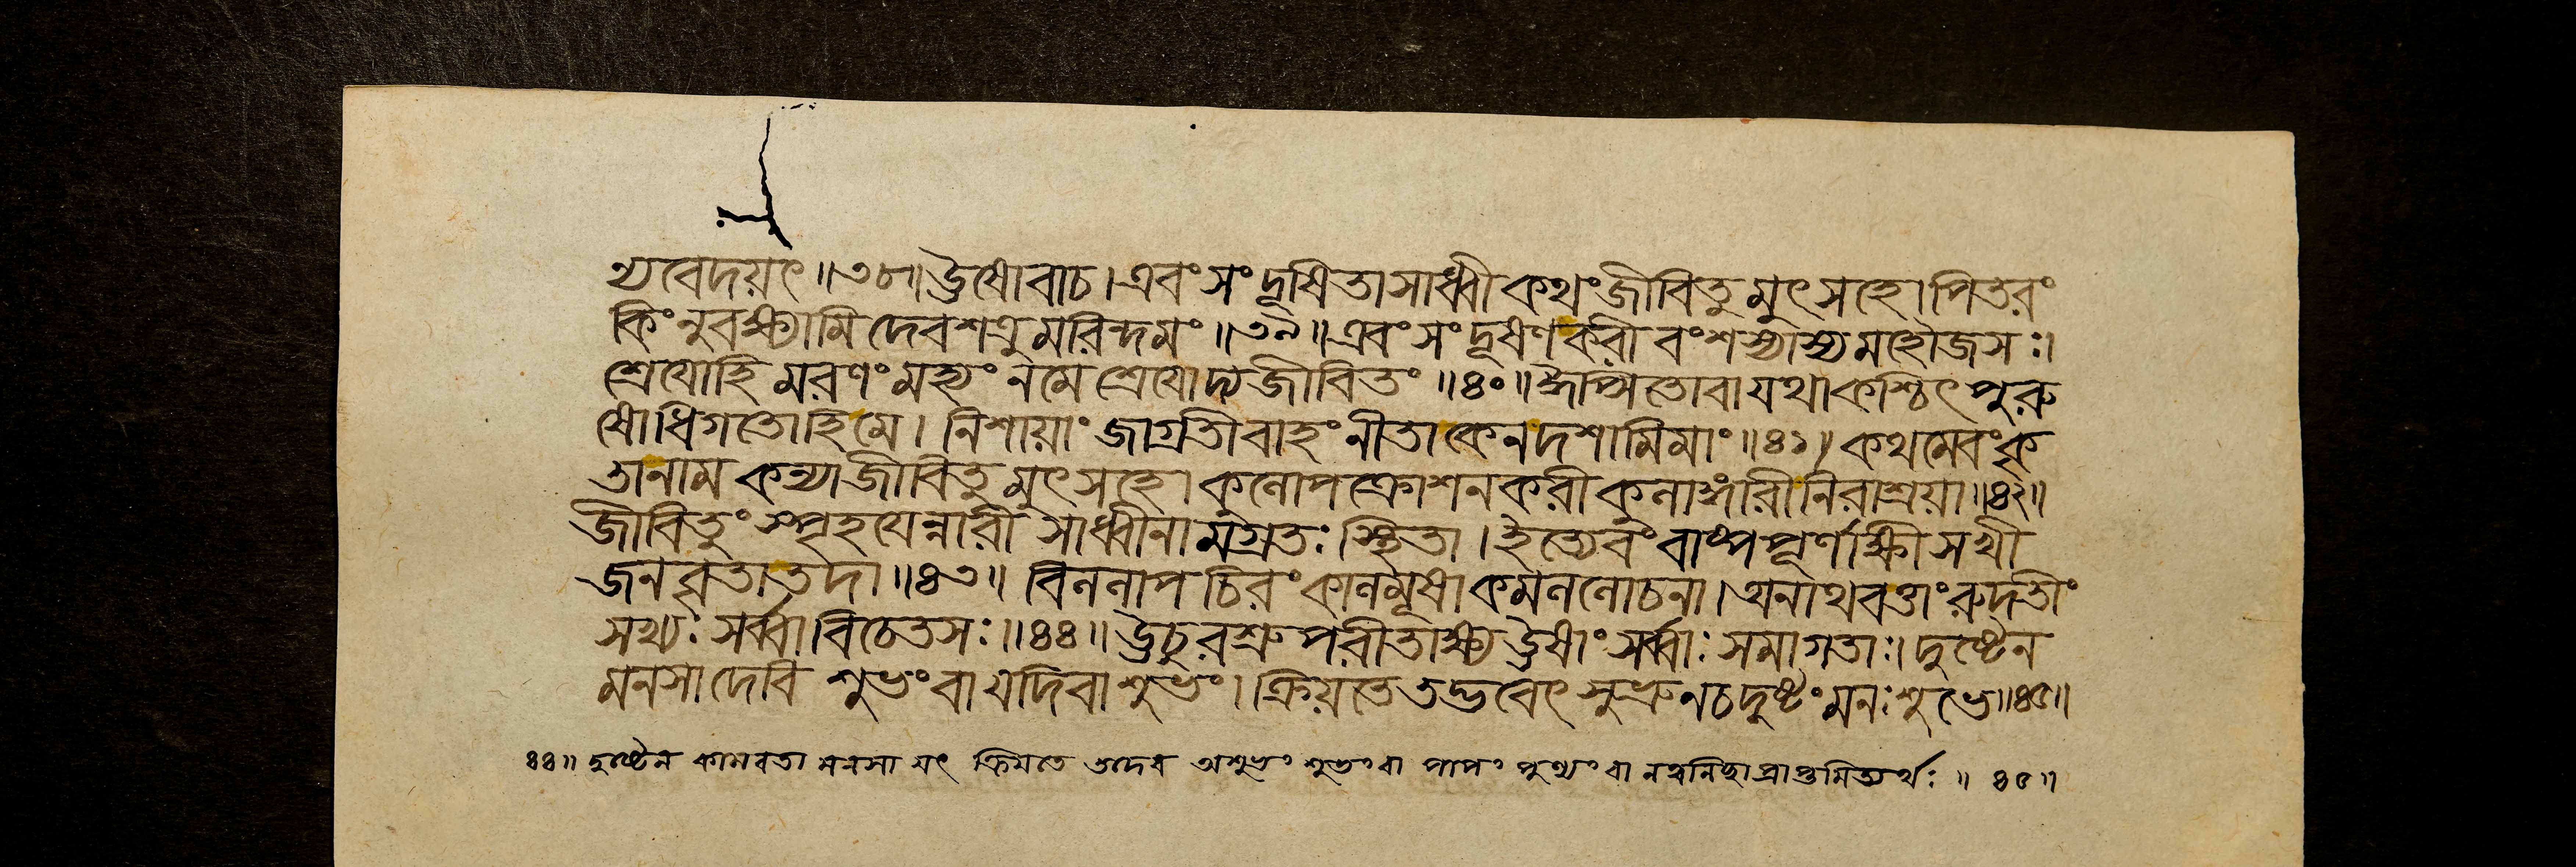 ণ্যবেদয়ৎ॥৩৮॥ঊষোবাচ।এবংসংদূষিতাসাধ্বীকথংজীবিতুমুৎসহে।পিতরং
কিংনুবক্ষ্যামিদেবশত্রুমরিন্দমং॥৩৯॥এবংসংদূষণকরীবংশস্যাস্যমহৌজসঃ।
শ্রেয়োহিমরণংমহ্যংনমেশ্রেয়োদ্যজীবিতং॥৪০॥ঈপ্সিতোবাযথাকশ্চিৎপুরু
ষোধিগতোহিমে।নিশায়াংজাগ্রতীবাহংনীতাকেনদশামিমাং॥৪১॥কথমেবংকৃ
তানামকন্যাজীবিতুমুৎসহে।কুলোপক্রোশনকরীকুলাঙ্গারীনিরাশ্রয়া॥৪২॥
জীবিতুংস্পৃহয়েন্নারীসাধ্বীনামগ্রতঃস্থিতা।ইত্যেবংবাষ্পপূর্ণাক্ষীসখী
জনবৃতাতদা॥৪৩॥বিললাপচিরংকালমূষাকমললোচনা।অনাথবত্তাংরুদতীং
সখ্যঃসর্ব্বাবিচেতসঃ॥৪৪॥ঊচুরশ্রুপরীতাক্ষ্যঊষাংসর্ব্বাঃসমাগতাঃ।দুষ্টেন
মনসাদেবিশুভংবাযদিবাশুভং।ক্রিয়তেতদ্ভবেৎসুভ্রুনচদুষ্টংমনঃশুভে॥৪৫॥
৪৪॥ দুষ্টেন কামবতা মনসা যৎ ক্রিয়তে তদেব অশুভং শুভং বা পাপং পুণ্যং বা ॥ ৪৫॥